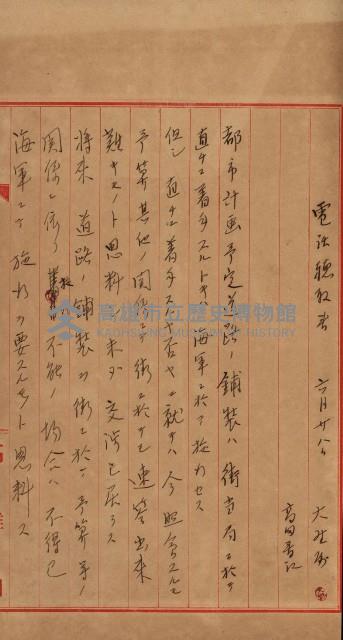 電話聴取書 六月廿八日 大社
高田書記
都市計画予定道路ノ鋪装ハ街当局ニ於テ
直チニ着手スルトキハ海軍ニ於テ施行セス
但シ直チニ着手スルヤ否ヤニ就テハ今照会スルモ
予算其他ノ関係 街ニ於テモ速答出来
難キモノト思料 未ダ交渉シ居ラス
将来道路ノ鋪装ヲ街ニ於テ予算等ノ
関係ニ依リ 不能ノ場合ハ不得已
海軍ニテ施行ヲ要スルモノト思料ス
高雄市立歷史博物館
KAOHSIUNG MUSEUM OF HISTORY